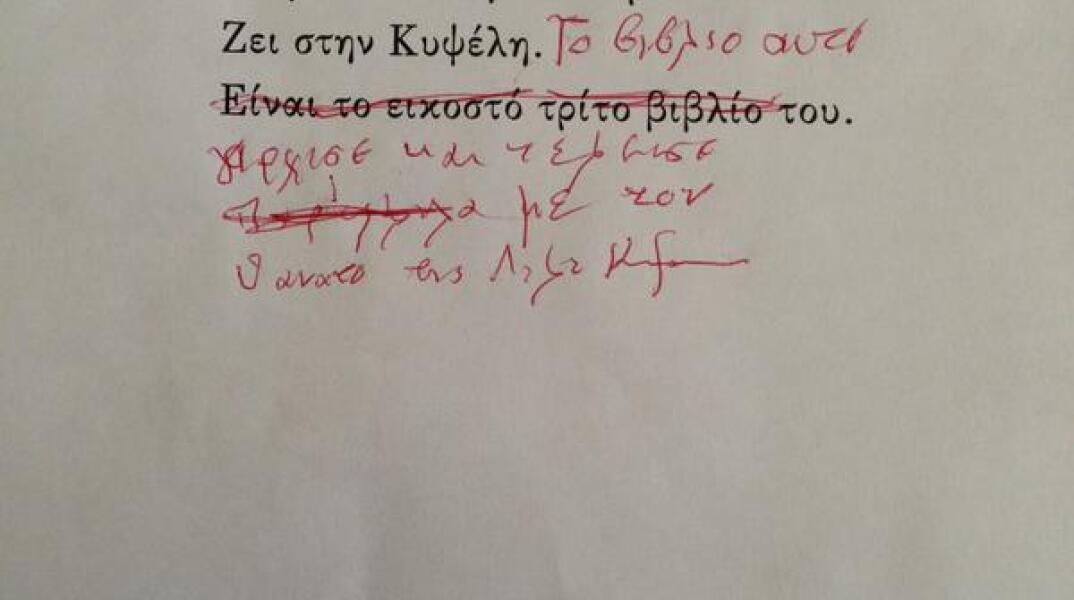 Ζει στην Κυψέλη. Το βιβλιο αυτο
Είναι το εικοστό τρίτο βιβλίο του.
αρχισε και τελειωσε
με τον
θανατο της